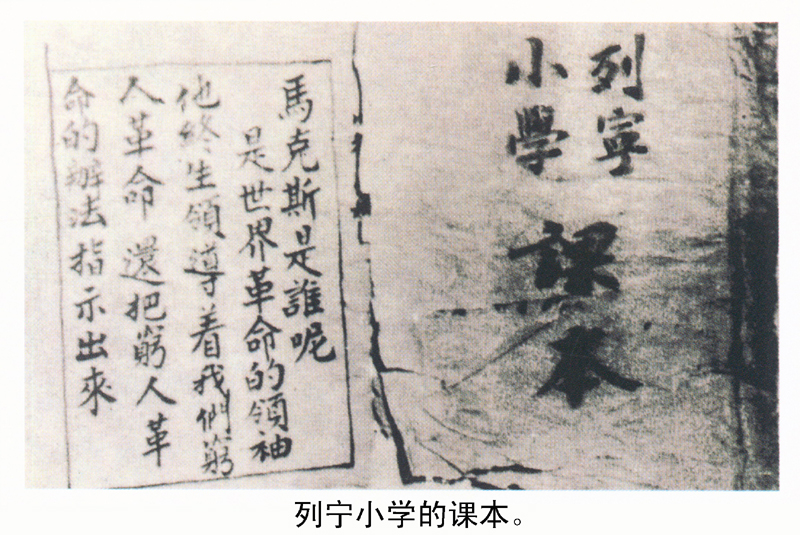 列寧
小學
課本
馬克斯是誰呢
是世界革命的領袖
他終生領導着我們窮
人革命還把窮人革
命的辦法指示出來
列宁小学的课本。